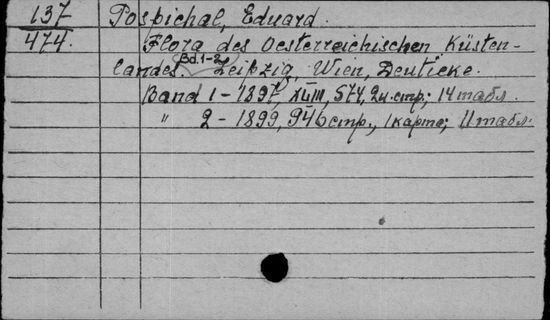 137 Pospichal, Eduard.
474. Flora des Oesterreichischen Küsten-
landes. Bd. 1-2. Leipzig, Wien, Deuticke.
Band 1 - 1897, XLIII, 574, 2 н. стр.; 14 табл.
" 2 - 1899, 946 стр., 1 карта; 11 табл.